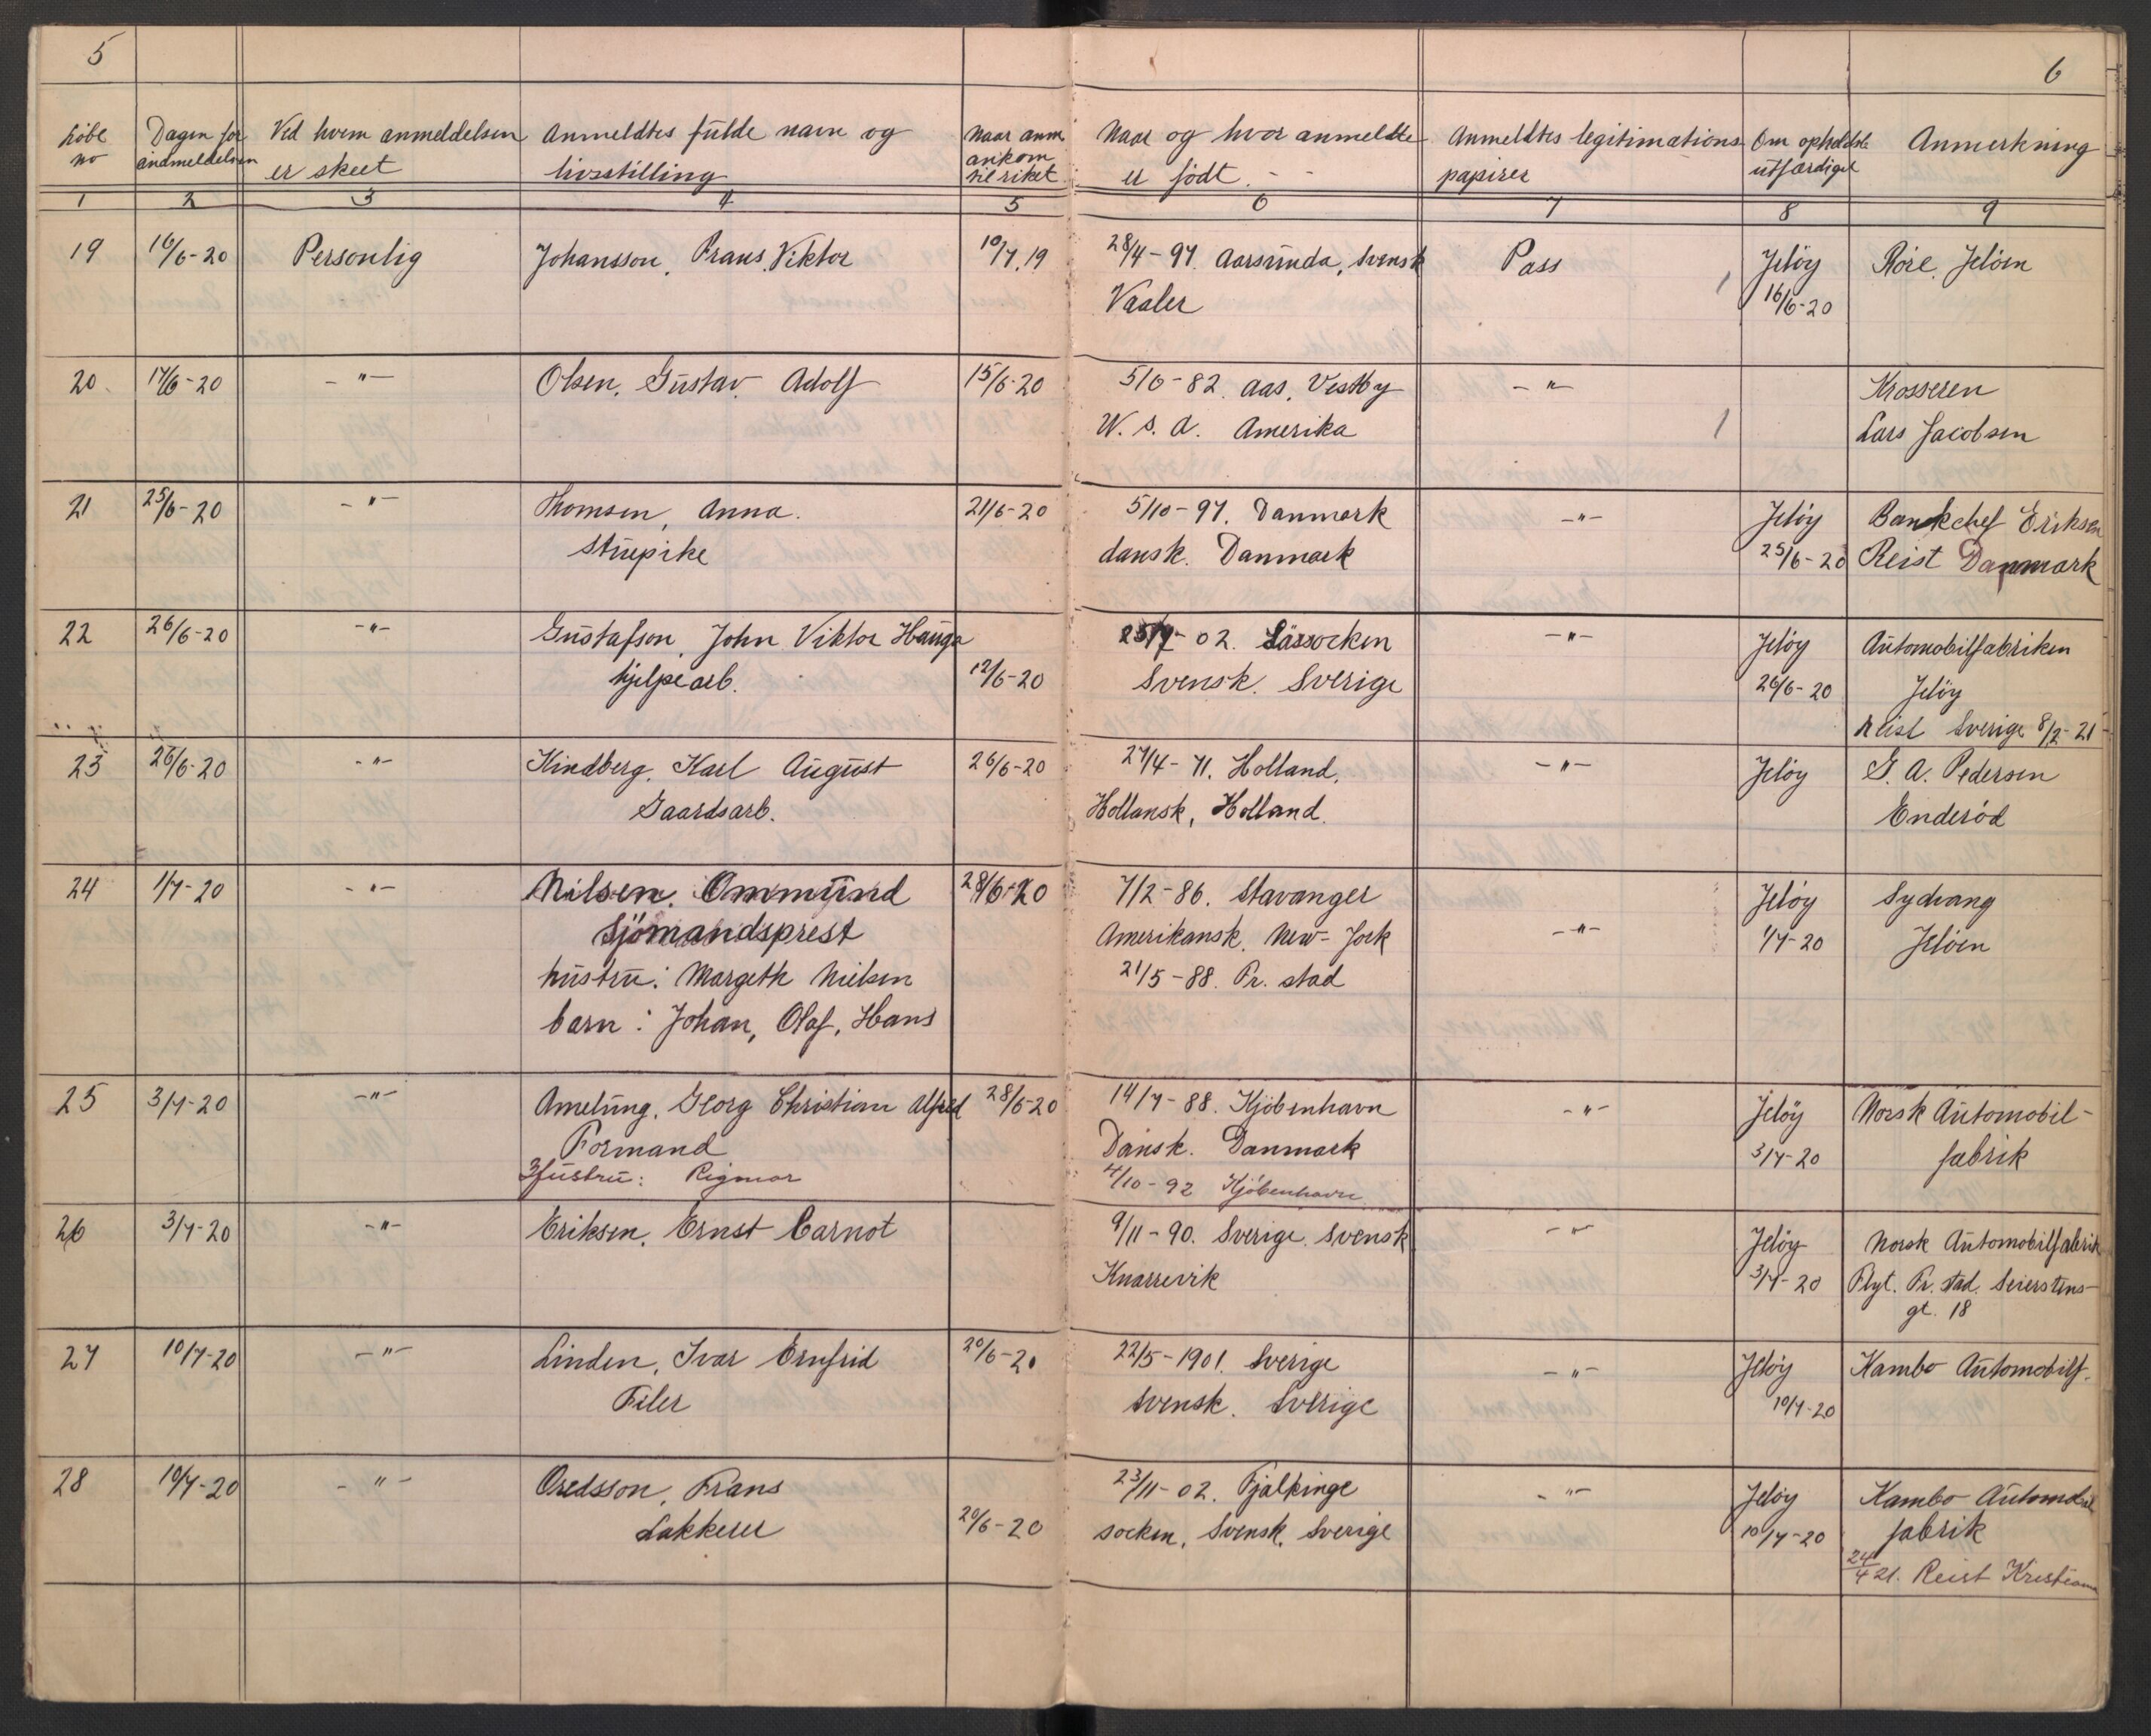 5
6
Löbe no | Dagen for andmeldelsen | Ved hvem anmeddelsen er skeet | Anmeldtes fulde navn og livsstilling | Naar anm ankom til riket | Naar og hvor anmeldte er födt. - - | Anmeldtes legitimations papirer | Om opholdsb utfærdiget | Anmerkning
1 | 2 | 3 | 4 | 5 | 6 | 7 | 8 | 9
19 | 16/6-20 | Personlig | Johansson, Frans Viktor | 10/7.19 | 28/4-97. Aarsunda, Svensk | Pass | Jeløy | Röre. Jelöen
Vaaler | 16/6-20
20 | 17/6-20 | -"- | Olsen, Gustav. Adolf | 15/6-20 | 5/6-82. Aas. Vestby | -"- | Krosseren
W. S. A. Amerika | Lars Jacobsen
21 | 25/6-20 | -"- | Thomsen, Anna. | 21/6-20 | 5/10-97. Danmark | -"- | Jeløy | Bankchef Eriksen
stuepike | dansk. Danmark | 25/6-20 | Reist Danmark
22 | 26/6-20 | -"- | Gustafson, John Viktor Hauga | 02. Lärsocken | -"- | Jeløy | Automobilfabriken
hjelpearb. | 12/6-20 | Svensk. Sverige | 26/6-20 | Jeløy
Reist Sverige 8/2-21
23 | 26/6-20 | -"- | Kindberg. Karl August | 26/6-20 | 27/4-71. Holland. | -"- | Jeløy | G. A. Pedersen
Gaardsarb. | Hollansk, Holland. | Enderöd
24 | 1/7-20 | -"- | Nilsen. Ommund | 28/6-20 | 7/2-86. Stavanger | -"- | Jeløy | Sydvang
Sjömandsprest | Amerikansk. New-Jork | 1/7-20 | Jelöen
hustru: Margeth Nielsen | 21/5-88. Fr. stad
barn: Johan, Olaf, Hans
25 | 3/7-20 | -"- | Amelung. Georg Christian Alfred | 28/6-20 | 14/7-88. Kjöbenhavn | -"- | Jeløy | Norsk Automobil-
Formand | Dansk. Danmark | 3/7-20 | fabrik
Hustru: Rigmor | 4/10-92 Kjöbenhavn
26 | 3/7-20 | -"- | Eriksen. Ernst Carnot | 9/11-90. Sverige. Svensk | -"- | Jeløy | Norsk Automobilfabrik
Knarrevik | 3/7-20 | Flyt. Fr. stad. Seierstens-
gt. 18
27 | 10/7-20 | -"- | Linden, Ivar Ernfrid | 20/6-20 | 22/5-1901. Sverige | -"- | Jeløy | Kambo Automobilf.
Filer | Svensk. Sverige | 10/7-20
28 | 10/7-20 | -"- | Oredsson, Frans | 23/11-02. Fjälkinge | -"- | Jeløy | Kambo Automobil
Lakkerer | 20/6-20 | socken, Svensk, Sverige | 10/7-20 | fabrik
24/4 21. Reist Kristiania